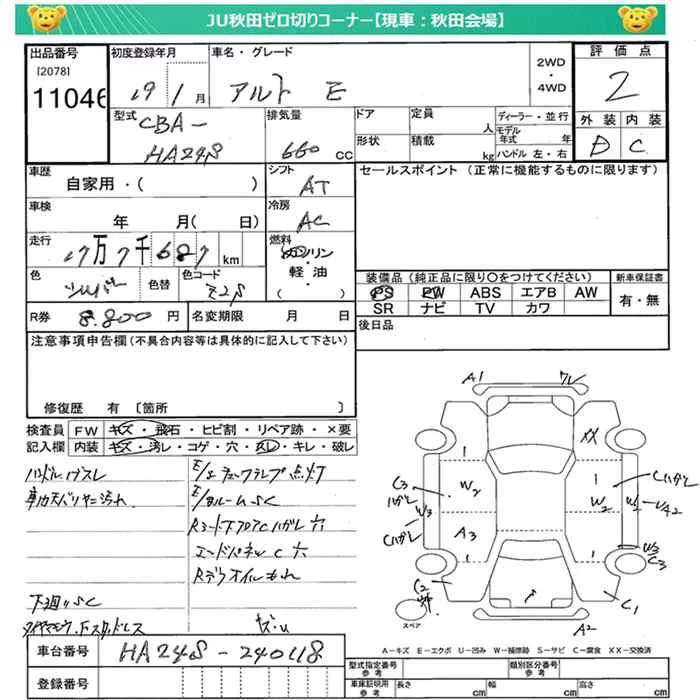 JU秋田ゼロ切りコーナー【現車:秋田会場】
出品番号 初度登録年月 車名・グレード 2WD・4WD 評価点
[2078]
11046 19 1月 アルト E 2
型式 排気量 ドア 定員 人 ディーラー・並行 外装 内装
CBA- 660 CC 形状 積載 kg モデル年式 年 D C
HA24S ハンドル 左・右
車歴 シフト セールスポイント (正常に機能するものに限ります)
自家用・( ) AT
車検 冷房
年 月(日) AC
走行 燃料
17万7千687km ガソリン
軽油・
( )
色 色替 色コード
シルバー Z2S
装備品(純正品に限り○をつけてください) 新車保証書
PS PW ABS エアB AW 有・無
SR ナビ TV カワ
R券 8.800円 名変期限 月 日
後日品
注意事項申告欄(不具合内容等は具体的に記入して下さい)
修復歴 有 [箇所 ]
検査員 FW キズ・飛石・ヒビ割・リペア跡・×要
記入欄 内装 キズ・汚レ・コゲ・穴・スレ・キレ・破レ
E/gチェックランプ点灯
E/gルームSC
Rコード下フロアCハガレ穴
エードパネルC穴
RデフオイルもれA
下廻りSC
A1
ワレ
XX
C3
ハガレ
W3
Cハガレ
W2
A3
W2
Cハガレ
UA2
W3
C3
C2
C1
A2
スペア
A-キズ E-エクボ U-凹み W-補修跡 S-サビ C-腐食 XX-交換済
車台番号 HA24S-240118
登録番号
型式指定番号 参考 類別区分番号 参考
車庫証明用 参考 長さ cm 幅 cm 高さ cm